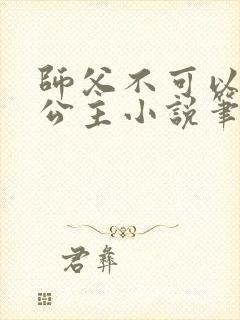 師父不可以
公主小說筆
君彝